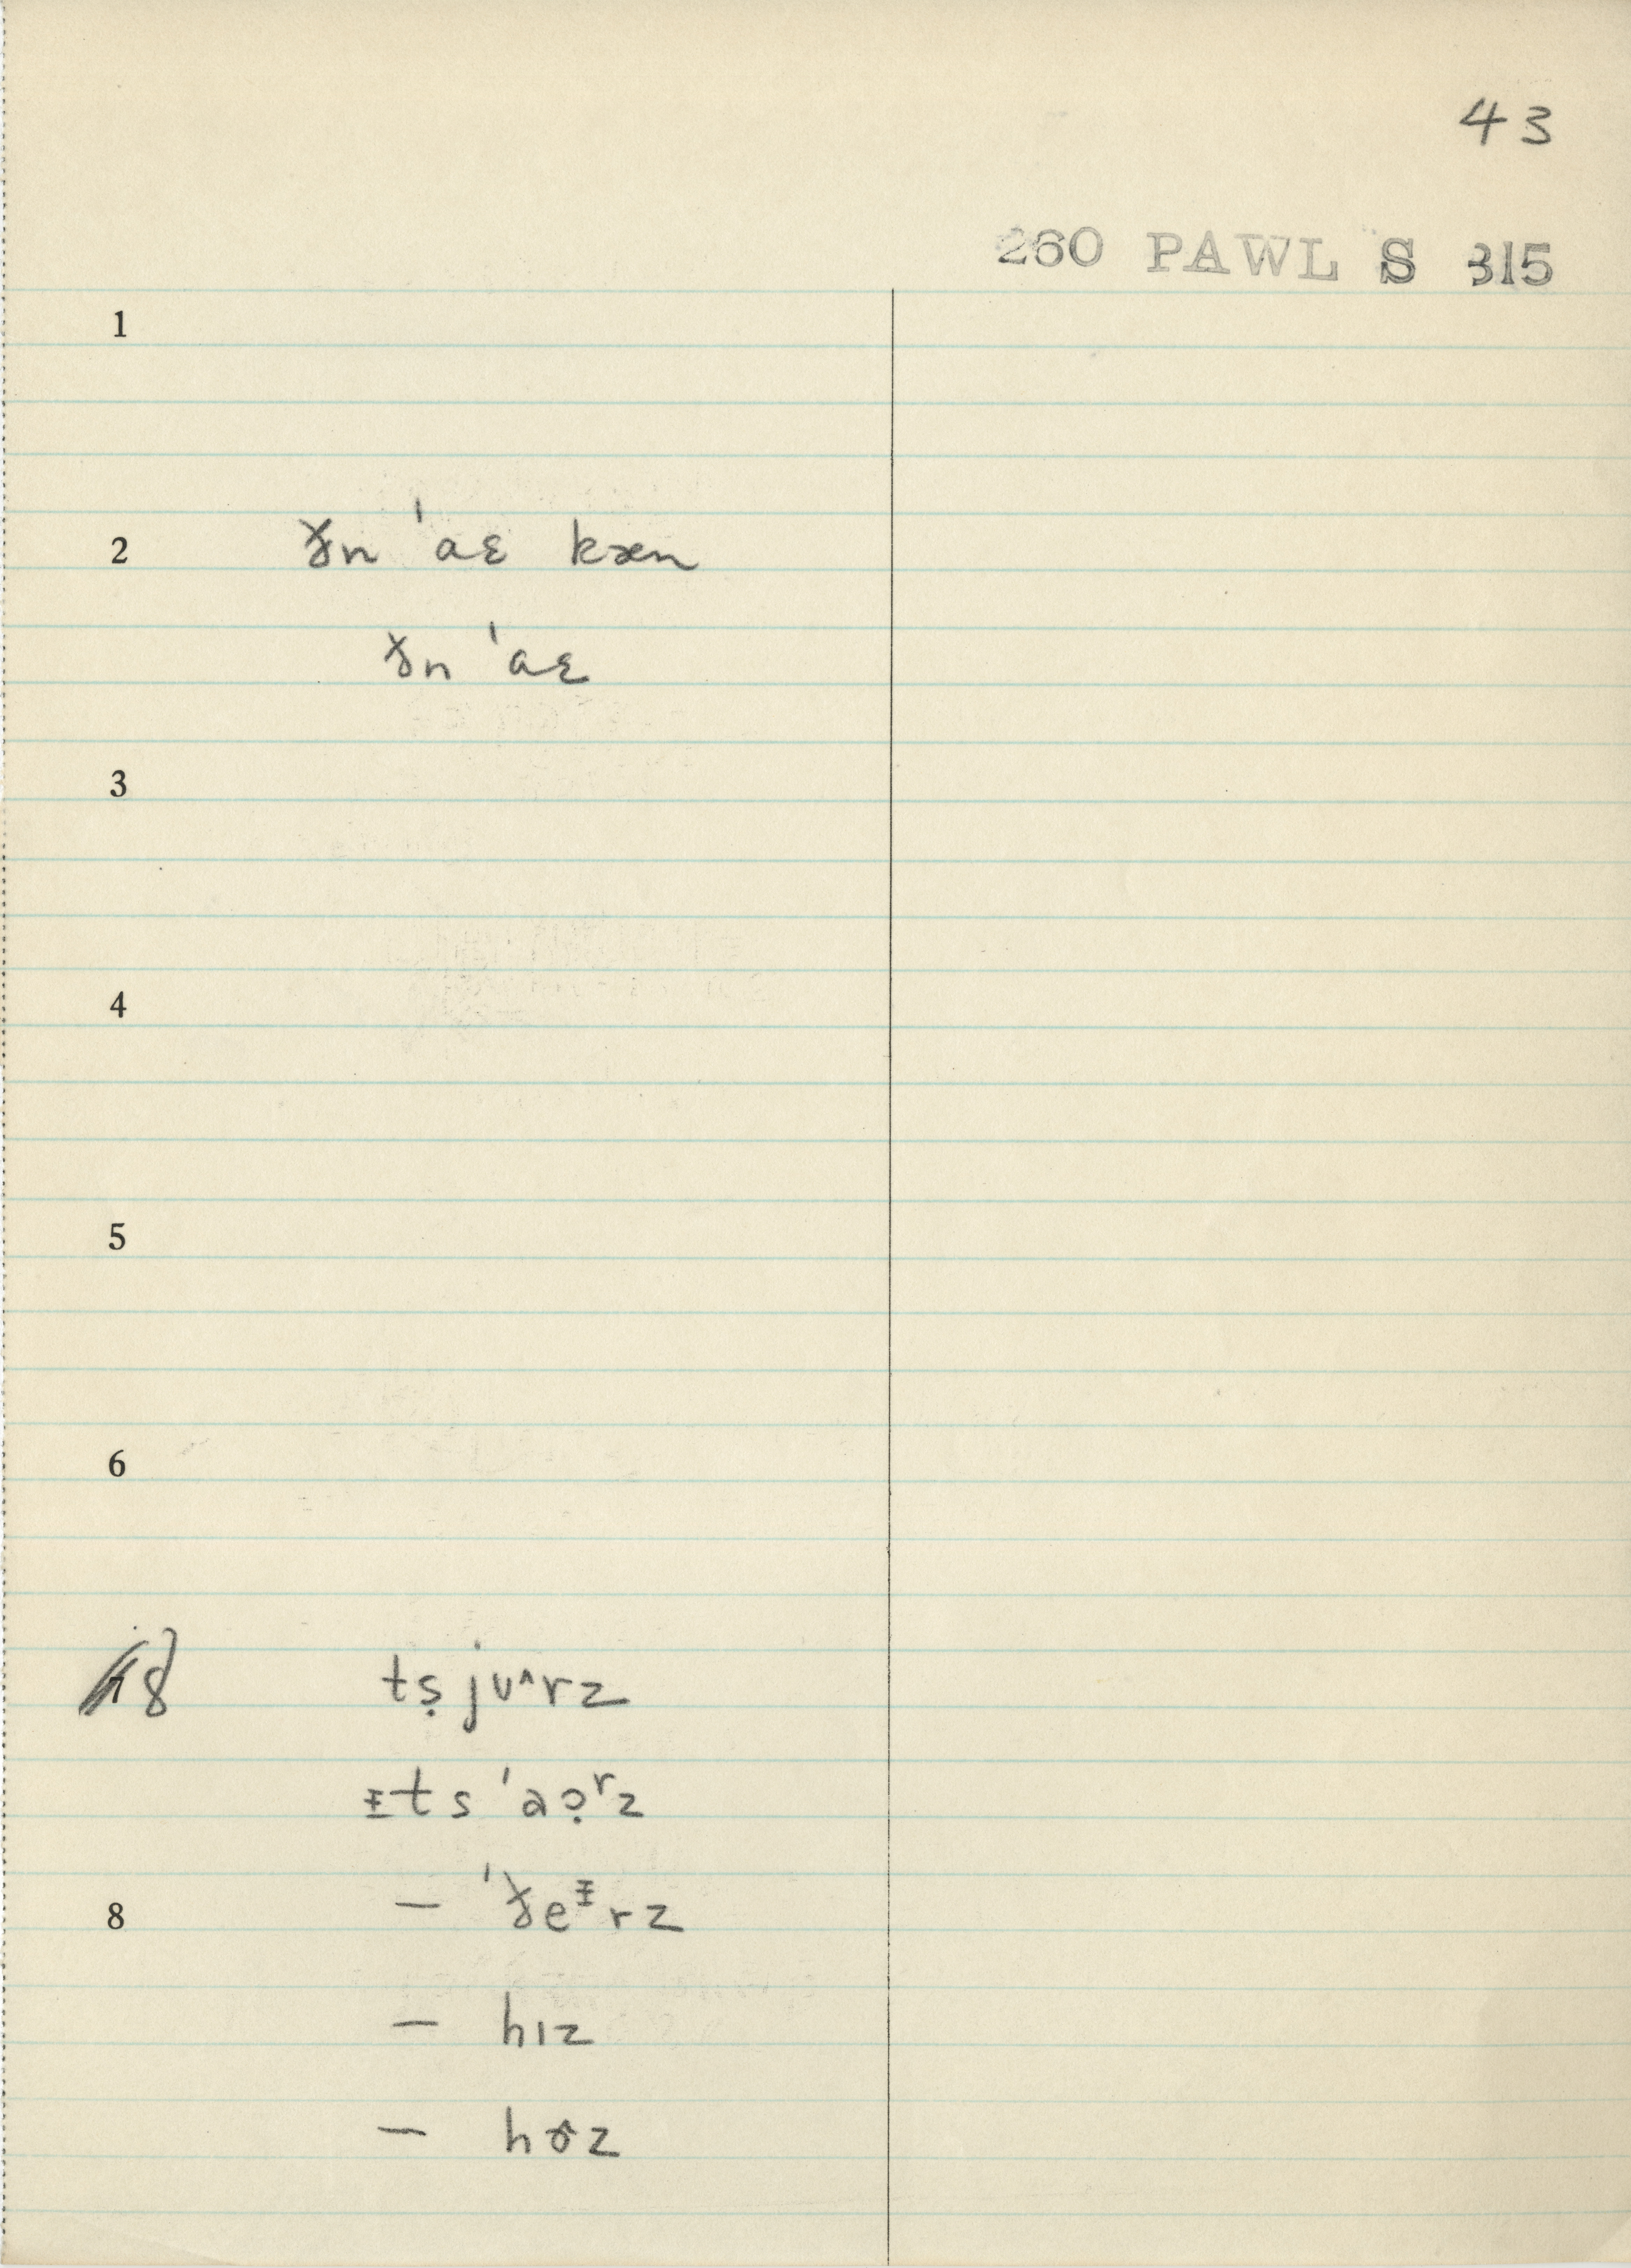 43
260 PAWL S 315
1
2 ɤ̵n ˈaɛ kæn
ɤ̵n ˈaɛ
3
4
5
6
8 tṣjʊ^rz
ᵻts ˈaɔ̣ʳz
8 — ˈɤ̵eᵻrz
— hɪz
— hɚz